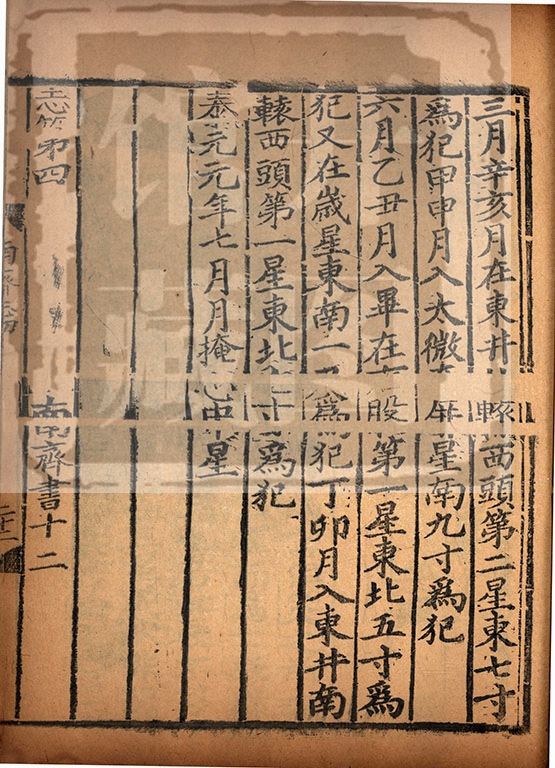 三月辛亥月在東井 轅西頭第二星東七寸
爲犯甲申月入太微 屏星南九寸爲犯
六月乙丑月入畢在 股第一星東北五寸爲
犯又在歲星東南一 爲犯丁卯月入東井南
轅西頭第一星東北 寸爲犯
泰元元年七月月掩心中星
志第四 南齊書十二